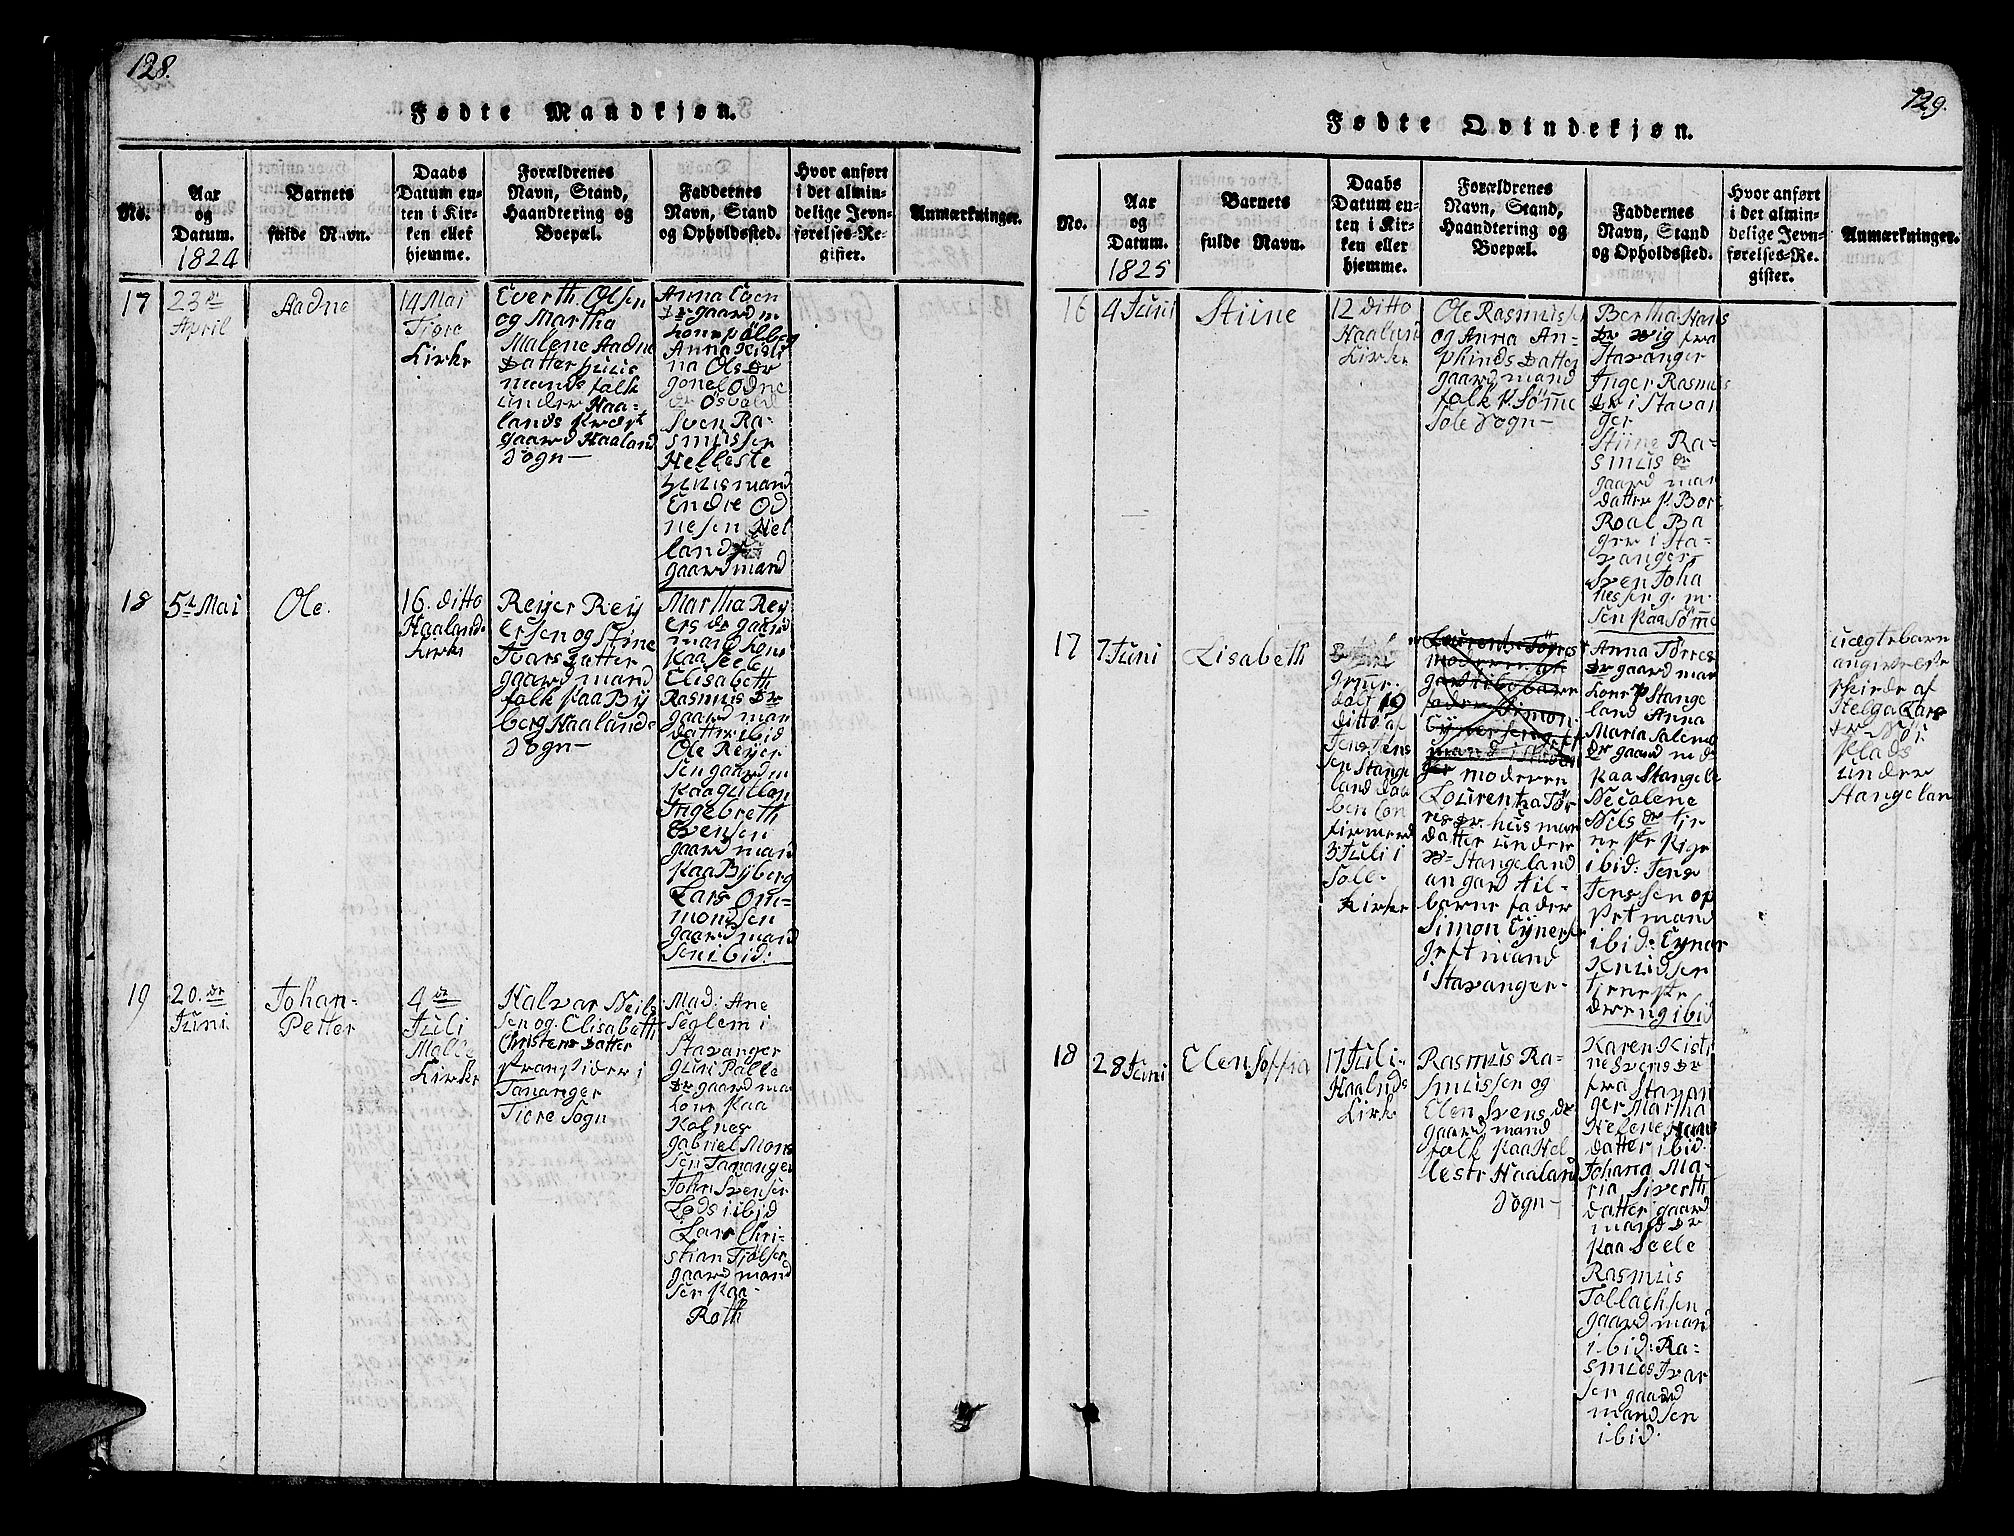 128.
Fødte Mandkjøn.
No.
Aar
og
Datum.
1824
Barnets
fulde Navn.
Daabs
Datum en-
ten i Kir-
ken eller
hjemme.
Forældrenes
Navn, Stand,
Haandtering og
Boepæl.
Faddernes
Navn, Stand
og Opholdssted.
Hvor anført
i det almin-
delige Jevn-
førelses-Re-
gister.
Anmærkninger.
17
23de
April
Aadne
14 Mai
Tiore
Kirke
Everth Olsen
og Martha
Malene Aadne
Datter huus
mands folk
under Haa-
lands Præst
gaard Haaland
Sogn-
Anna
Dr gaard m
kone p
Anna Kisti
na Ols Dr
Sven Ra-
smussen
Helleste
huusmand
Endre Od
nesen Hel
land
gaardmand
18
5te Mai
Ole.
16. ditto
Haaland
Kirke
Reijer Reij
ersen og Stine
Ivars Datter
gaard mand
folk paa Bij
berg Haalands
Sogn-
Martha Reij
ers dr gaard
mand kone
paa Seele
Elisabeth
Rasmus Dr
gaard man
datter ibid
Ole Reijer
sen gaard m
paa
Ingebreth
Svensen
gaard mand
paa Bijberg
Lars Om-
mondsen
gaard mand
sen ibid:
19
20. de
Juni
Johan-
Petter
4 de
Juli
Malle
Kirke
Halvar Neils
sen og Elisabeth
Christens Datter
strandsider i
Tananger
Tiore Sogn
Mad: Ane
Seglem i
Stavanger
Guri Palle
Dr gaard ma
kone paa
Kolnes
Gabriel Mons
sen Tananger
John Svensen
Lods i ibid
Lars Chri-
stian Tiølsen
gaard mand
sen paa-
Roth
129.
Fødte Qvindekjøn.
No.
Aar
og
Datum.
1825
Barnets
fulde Navn.
Daabs
Datum en-
ten i Kir-
ken eller
hjemme.
Forældrenes
Navn, Stand,
Haandtering og
Boepæl.
Faddernes
Navn, Stand
og Opholdssted.
Hvor anført
i det almin-
delige Jevn-
førelses-Re-
gister.
Anmærkninger.
16
4 Juni
Stiine
12 Ditto
Haaland
Kirke
Ole Rasmusse
og Anna An-
phinds Datter
gaard mand
folk p. Sømme
Sole Sogn-
Bertha Hans
Dr vig fra
Stavanger
Inger Rasmus
Dr i Stavan
ger
Stiine Ra-
smus dr
gaard man
datter p. Bor-
Roal Ba
ger i Sta-
vanger
Sven Joha
nessen g. m.
sen paa Sømme
17
7 Juni
Lisabeth
19
ditto af
Jens Jens
sen Stange
land Daa
ben Con
firmerd
3 Juli i
Sole-
Kirke
Laurentze Tørres
moderen
fader Simon
mand i Stavan
ger moderen
Lourentza Tør
res Dr. hus man
datter under
Stangeland
angav til-
barne fader
Simon Eijnerse
mand
i Stavanger-
Anna Tørres
Dr gaard man
kone p Stange
land Anna
Maria Salemo
Dr gaard m dr
paa Stangela
Necolene
Nils Dr tie
ne pige
ibid: Jens
Jenssen op
mand
ibid: Eijnar
Knudsen
tieneste
dreng ibid
uægtebarn
angivelse
skeede af
Helga Lars
Dr
Plads
under
Aangelan
18
28 Juni
Elen Soffia
17 Juli-
Haalands
Kirke
Rasmus Ra-
smussen og
Elen Svens dr
gaard mand
folk paa Hel
lestr Haaland
Sogn-
Karen Kisti
ne Svens Dr
fra Stavan
ger Martha
Helene Hans
datter ibid.
Johana Ma-
ria Siverth
datter gaard
mand Dr
paa Seele
Rasmus
Tollachsen
gaard man
ibid: Ra-
smus Ivar
sen gaard
mandsen
ibid.